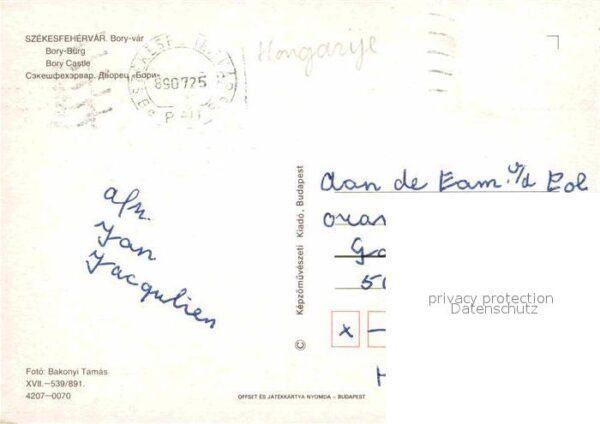 SZÉKESFEHÉRVÁR. Bory-vár
Bory-Burg
Bory Castle
Сэкешфехэрвар. Дворец «Бори»
890725
Hongarije
afz.
Jan
Jacqulien
© Képzőművészeti Kiadó, Budapest
Aan de Fam. v/d Eol
oran
Ga
50
x –
privacy protection
Datenschutz
Fotó: Bakonyi Tamás
XVII.—539/891.
4207—0070
OFFSET ÉS JÁTÉKKÁRTYA NYOMDA – BUDAPEST